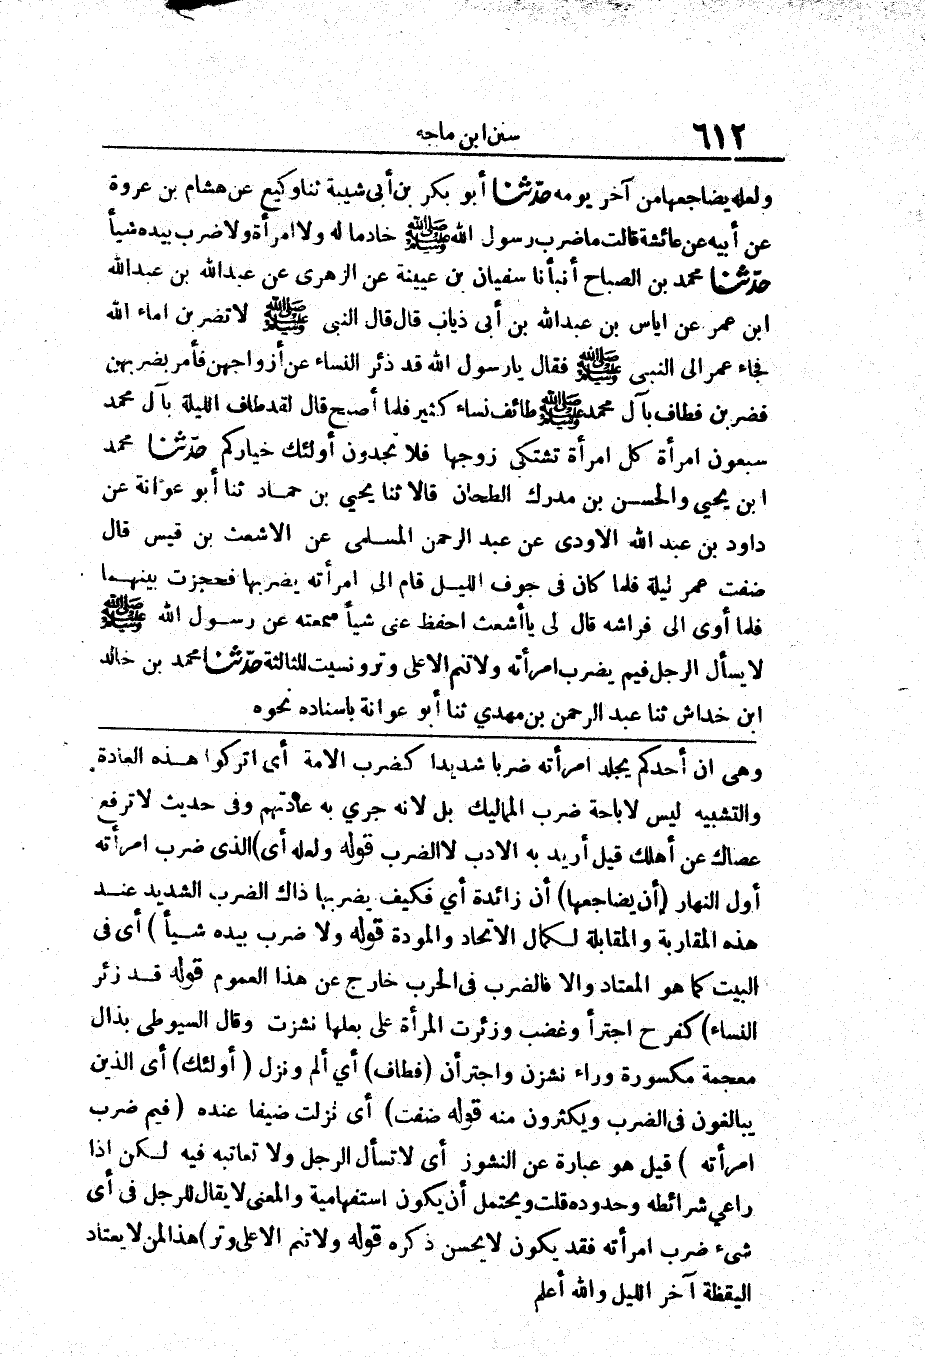 ٦١٢
سنن ابن ماجه
ولعله يضاجعها من آخر يومه حدّثنا أبو بكر بن أبى شيبة ثنا وكيع عن هشام بن عروة
عن أبيه عن عائشة قالت ما ضرب رسول الله ﷺ خادما له ولا امرأة ولا ضرب بيده شيأ
حدّثنا محمد بن الصباح أنبأنا سفيان بن عيينة عن الزهرى عن عبدالله بن عبدالله
ابن عمر عن اياس بن عبدالله بن أبى ذياب قال قال النبى ﷺ لا تضربن اماء الله
فجاء عمر الى النبى ﷺ فقال يارسول الله قد ذئر النساء عن أزواجهن فأمر بضربهن
فضربن فطاف بآل محمد ﷺ طائف نساء كثير فلما أصبح قال لقد طاف الليلة بآل محمد
سبعون امرأة كل امرأة تشتكى زوجها فلا تجدون أولئك خياركم حدّثنا محمد
ابن يحيي والحسن بن مدرك الطحان قالا ثنا يحيي بن حماد ثنا أبو عوانة عن
داود بن عبد الله الاودى عن عبد الرحمن المسلمى عن الاشعث بن قيس قال
ضفت عمر ليلة فلما كان فى جوف الليل قام الى امرأته يضربها فحجزت بينهما
فلما أوى الى فراشه قال لى يا أشعث احفظ عنى شيأ سمعته عن رسول الله ﷺ
لا يسأل الرجل فيم يضرب امرأته ولا تنم الا على وتر ونسيت الثالثة حدّثنا محمد بن خالد
ابن خداش ثنا عبد الرحمن بن مهدي ثنا أبو عوانة باسناده نحوه
وهى ان أحدكم يجلد امرأته ضربا شديدا كضرب الامة أى اتركوا هذه العادة
والتشبيه ليس لاباحة ضرب المماليك بل لانه جري به عادتهم وفى حديث لا ترفع
عصاك عن أهلك قيل أريد به الادب لا الضرب قوله ولعله أى) الذى ضرب امرأته
أول النهار (أن يضاجعها) أن زائدة أي فكيف يضربها ذاك الضرب الشديد عند
هذه المقاربة والمقابلة لكمال الاتحاد والمودة قوله ولا ضرب بيده شيأ) أى فى
البيت كما هو المعتاد والا فالضرب فى الحرب خارج عن هذا العموم قوله قد زئر
النساء) كفرح اجترأ وغضب وزئرت المرأة على بعلها نشزت وقال السيوطى بذال
معجمة مكسورة وراء نشزن واجترأن (فطاف) أي ألم ونزل (أولئك) أى الذين
يبالغون فى الضرب ويكثرون منه قوله ضفت) أى نزلت ضيفا عنده (فيم ضرب
امرأته) قيل هو عبارة عن النشوز أى لا تسأل الرجل ولا تعاتبه فيه لكن اذا
راعي شرائطه وحدوده قلت ويحتمل أن يكون استفهامية والمعنى لا يقال للرجل فى أى
شىء ضرب امرأته فقد يكون لا يحسن ذكره قوله ولا تنم الا على وتر) هذا لمن لا يعتاد
اليقظة آخر الليل والله أعلم